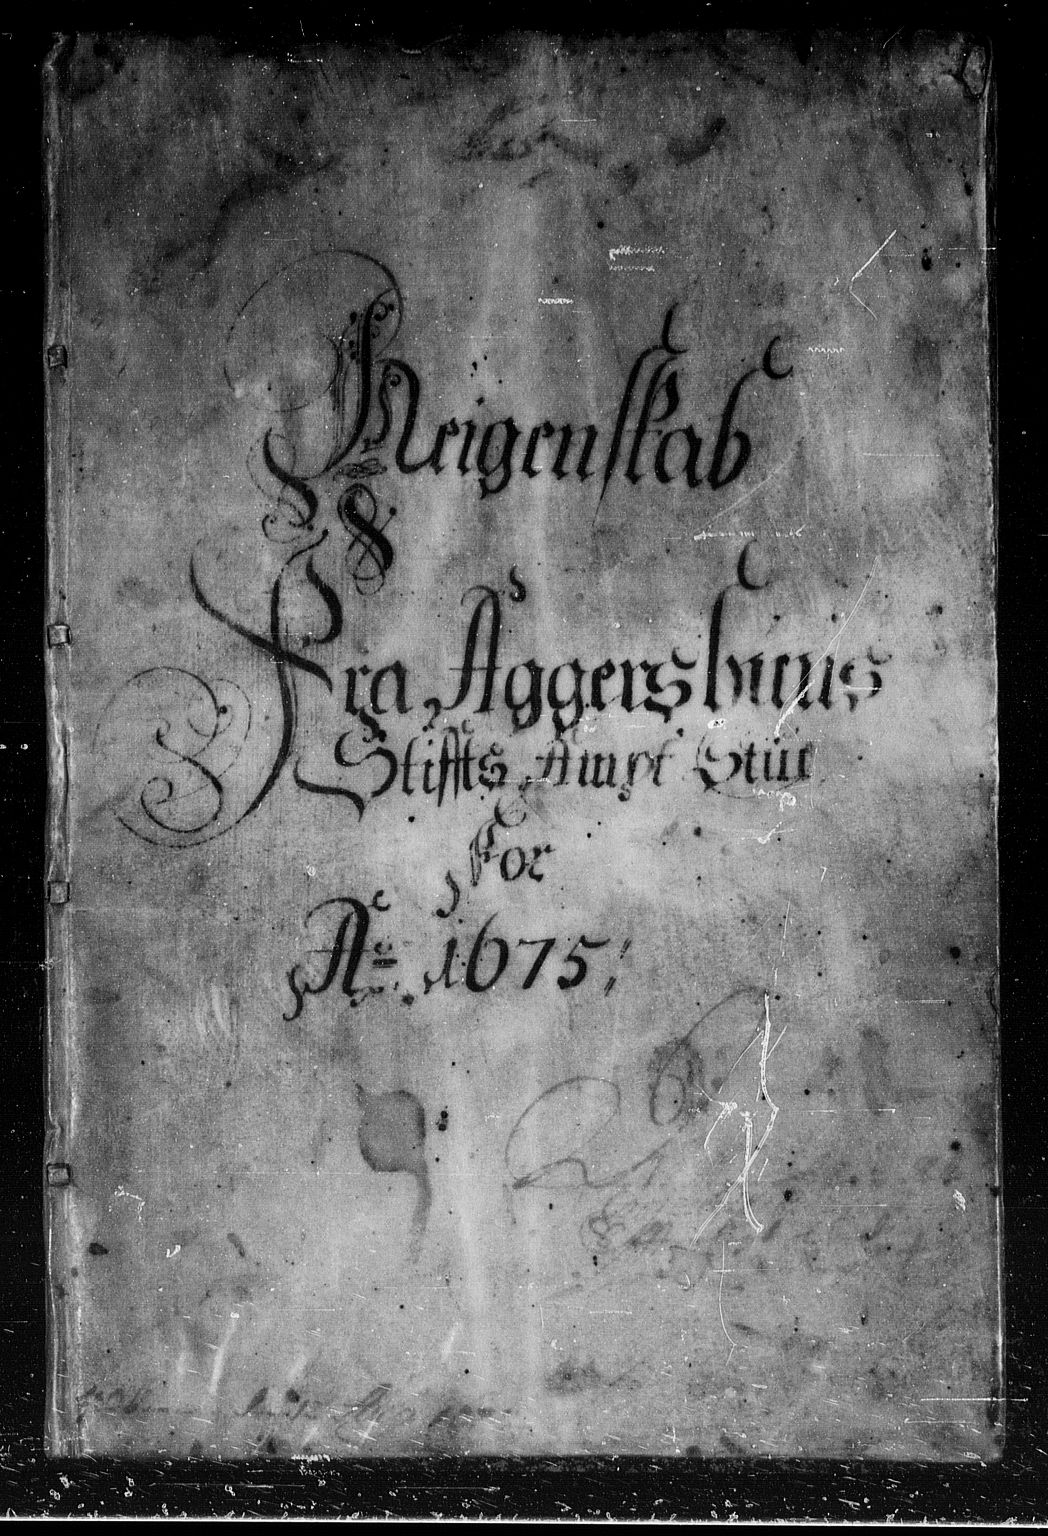 Reigenskab
Fra Aggershuus
Stiffts Ampt Stue
For
Ao 1675